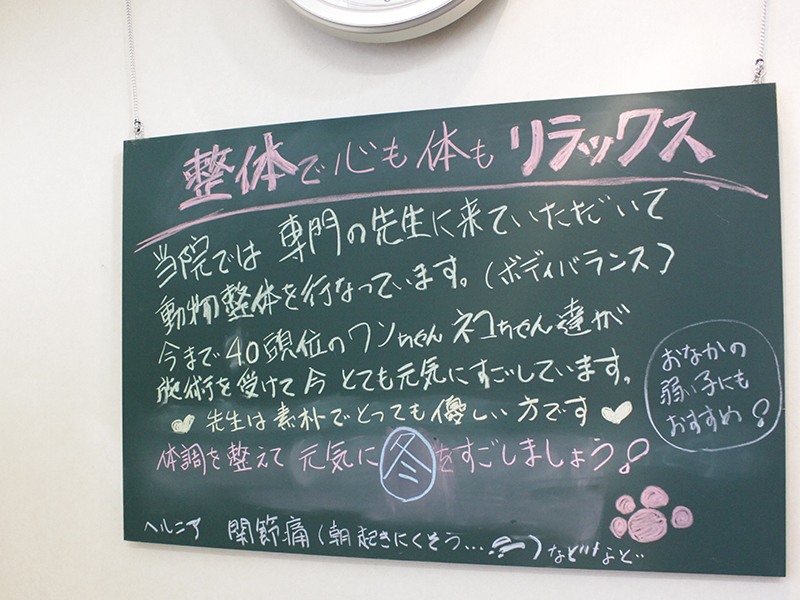 整体で心も体もリラックス
当院では専門の先生に来ていただいて
動物整体を行なっています。(ボディバランス)
今まで40頭位のワンちゃんネコちゃん達が
施術を受けて今とても元気にすごしています。
先生は素朴でとっても優しい方です
おなかの
弱い子にも
おすすめ!
体調を整えて元気に冬をすごしましょう!
ヘルニア 関節痛(朝起きにくそう…)などなど